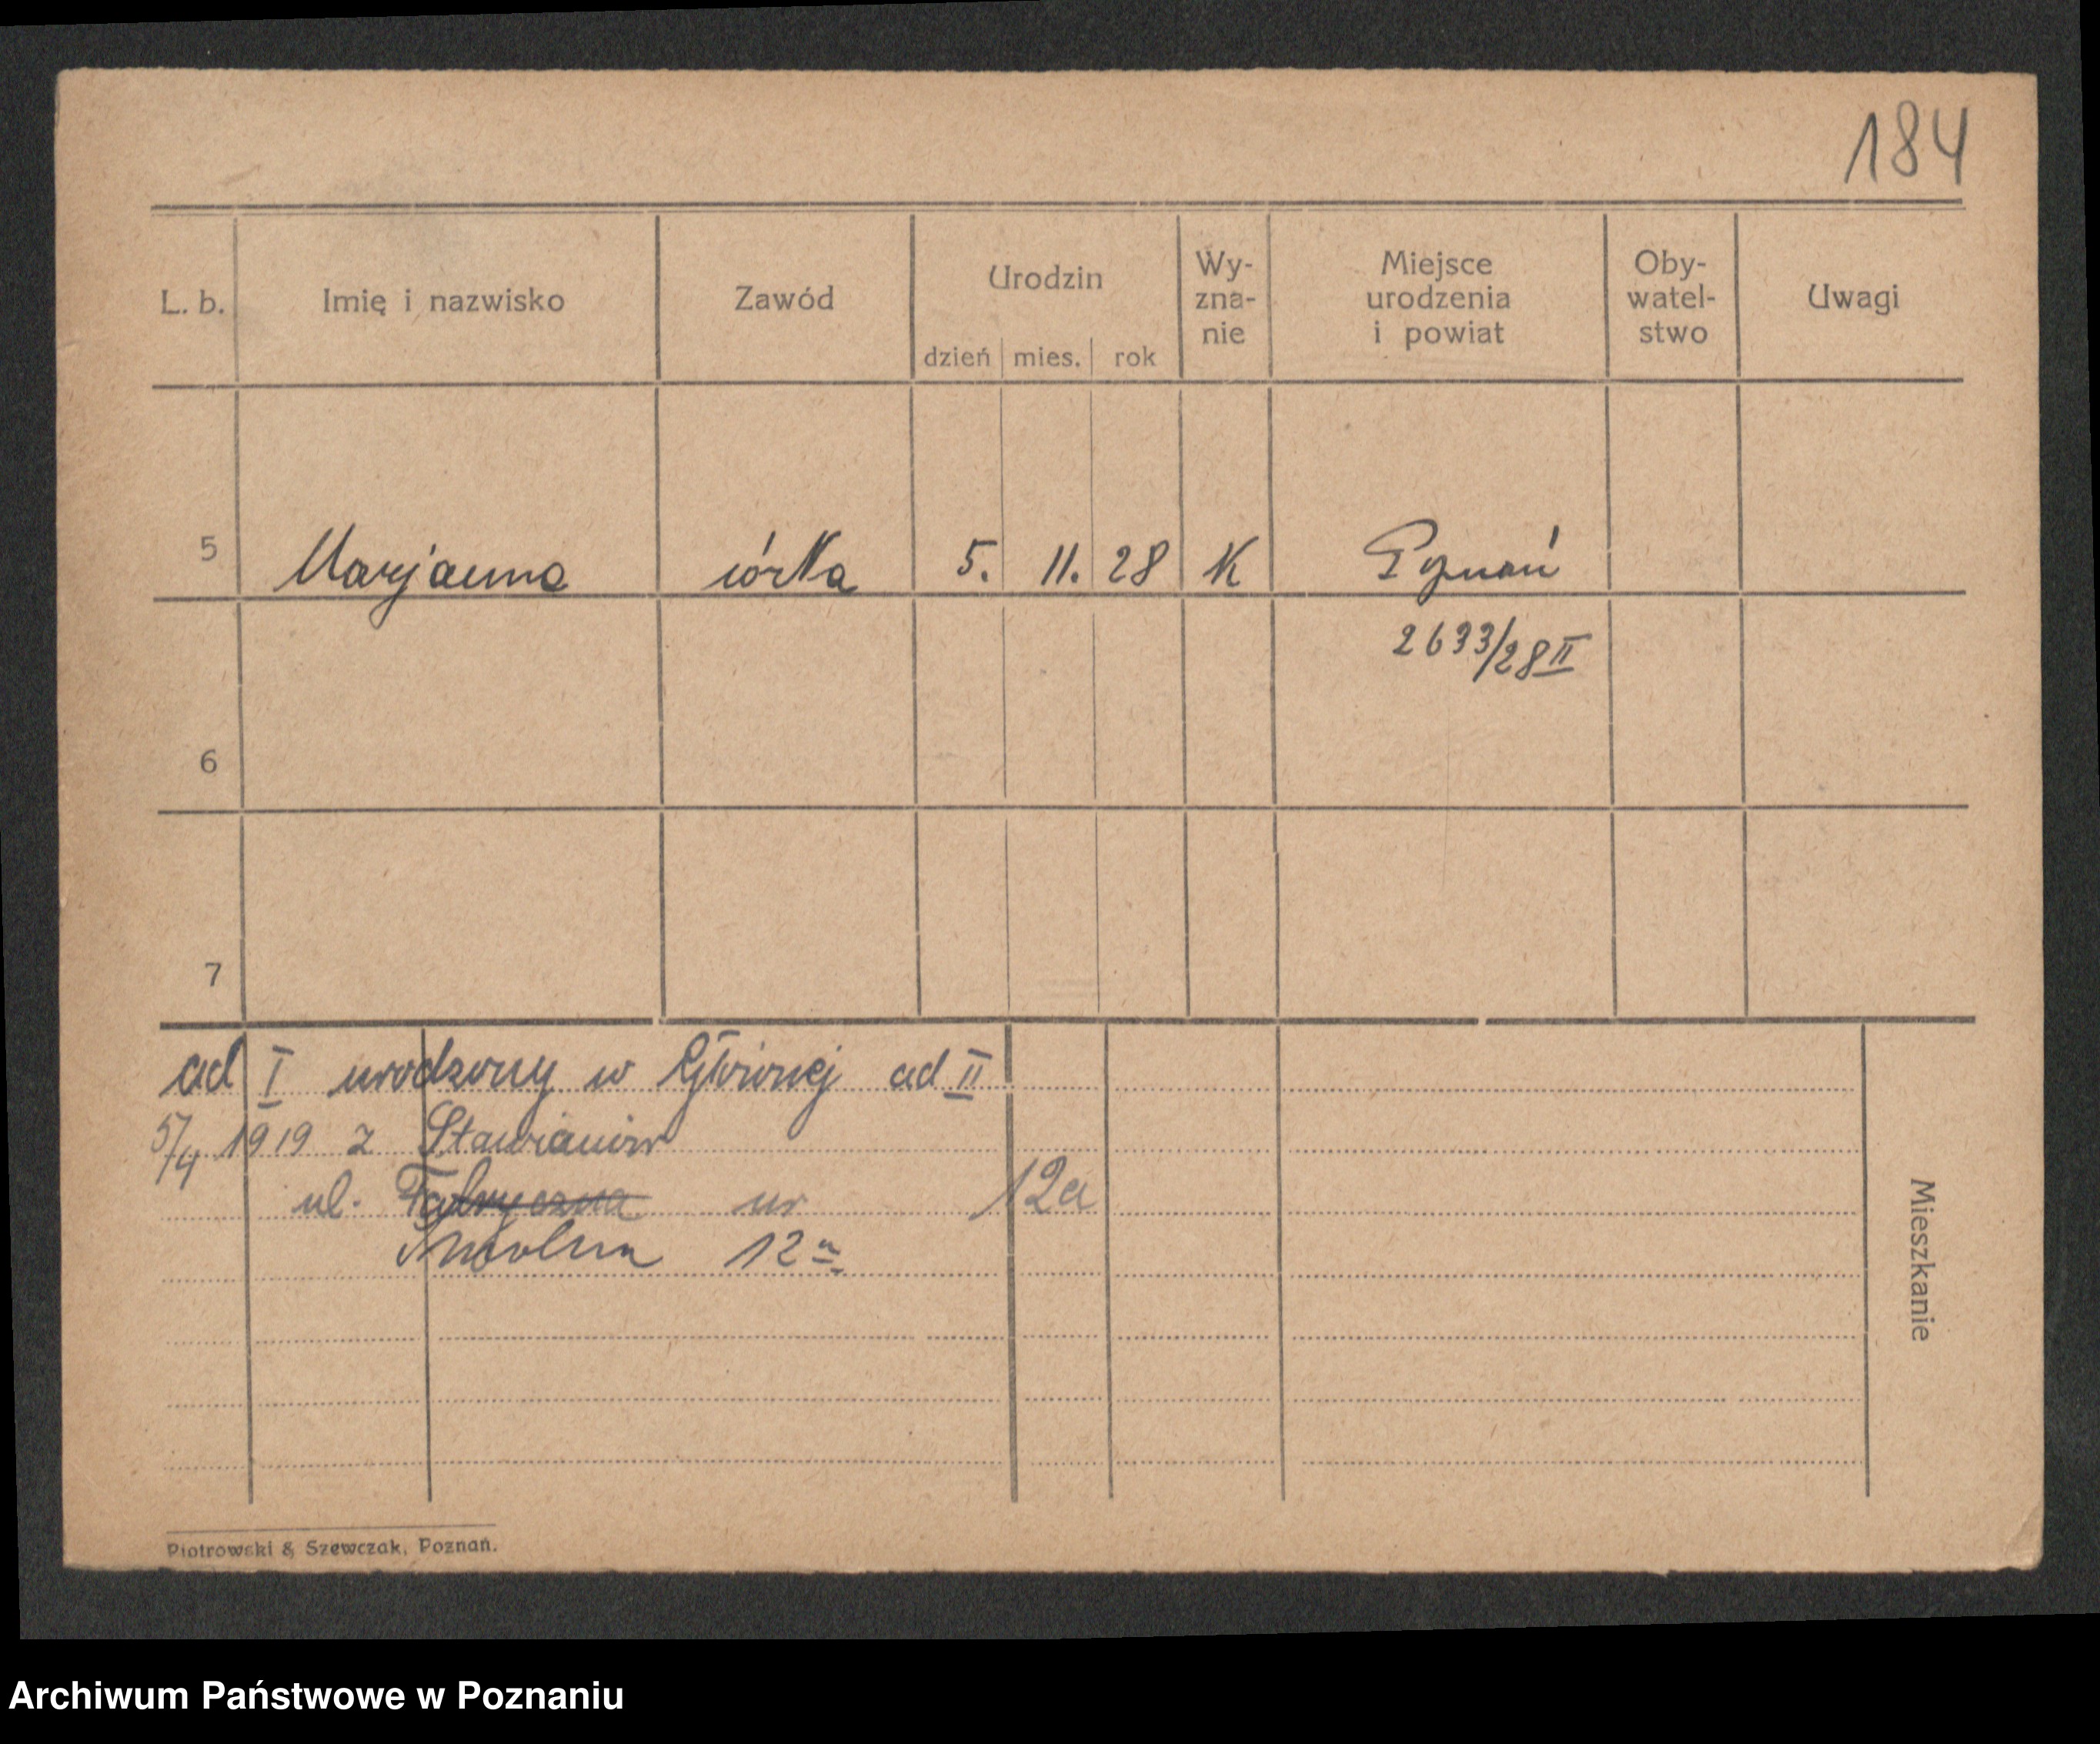 184
L. b. Imię i nazwisko Zawód Urodzin dzień mies. rok Wy-zna-nie Miejsce urodzenia i powiat Oby-watel-stwo Uwagi
5 Marjanna córka 5. 11. 28 K Poznań
2633/28 II
6
7
ad I urodzony w Głównej ad II
5/4 1919 z
ul. Fabryczna nr 12a
12a
Mieszkanie
Piotrowski & Szewczak, Poznań.
Archiwum Państwowe w Poznaniu